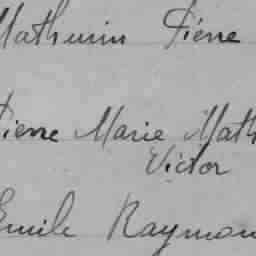 Mathurin Pierre
Pierre Marie Math
Victor
Emile Raymon